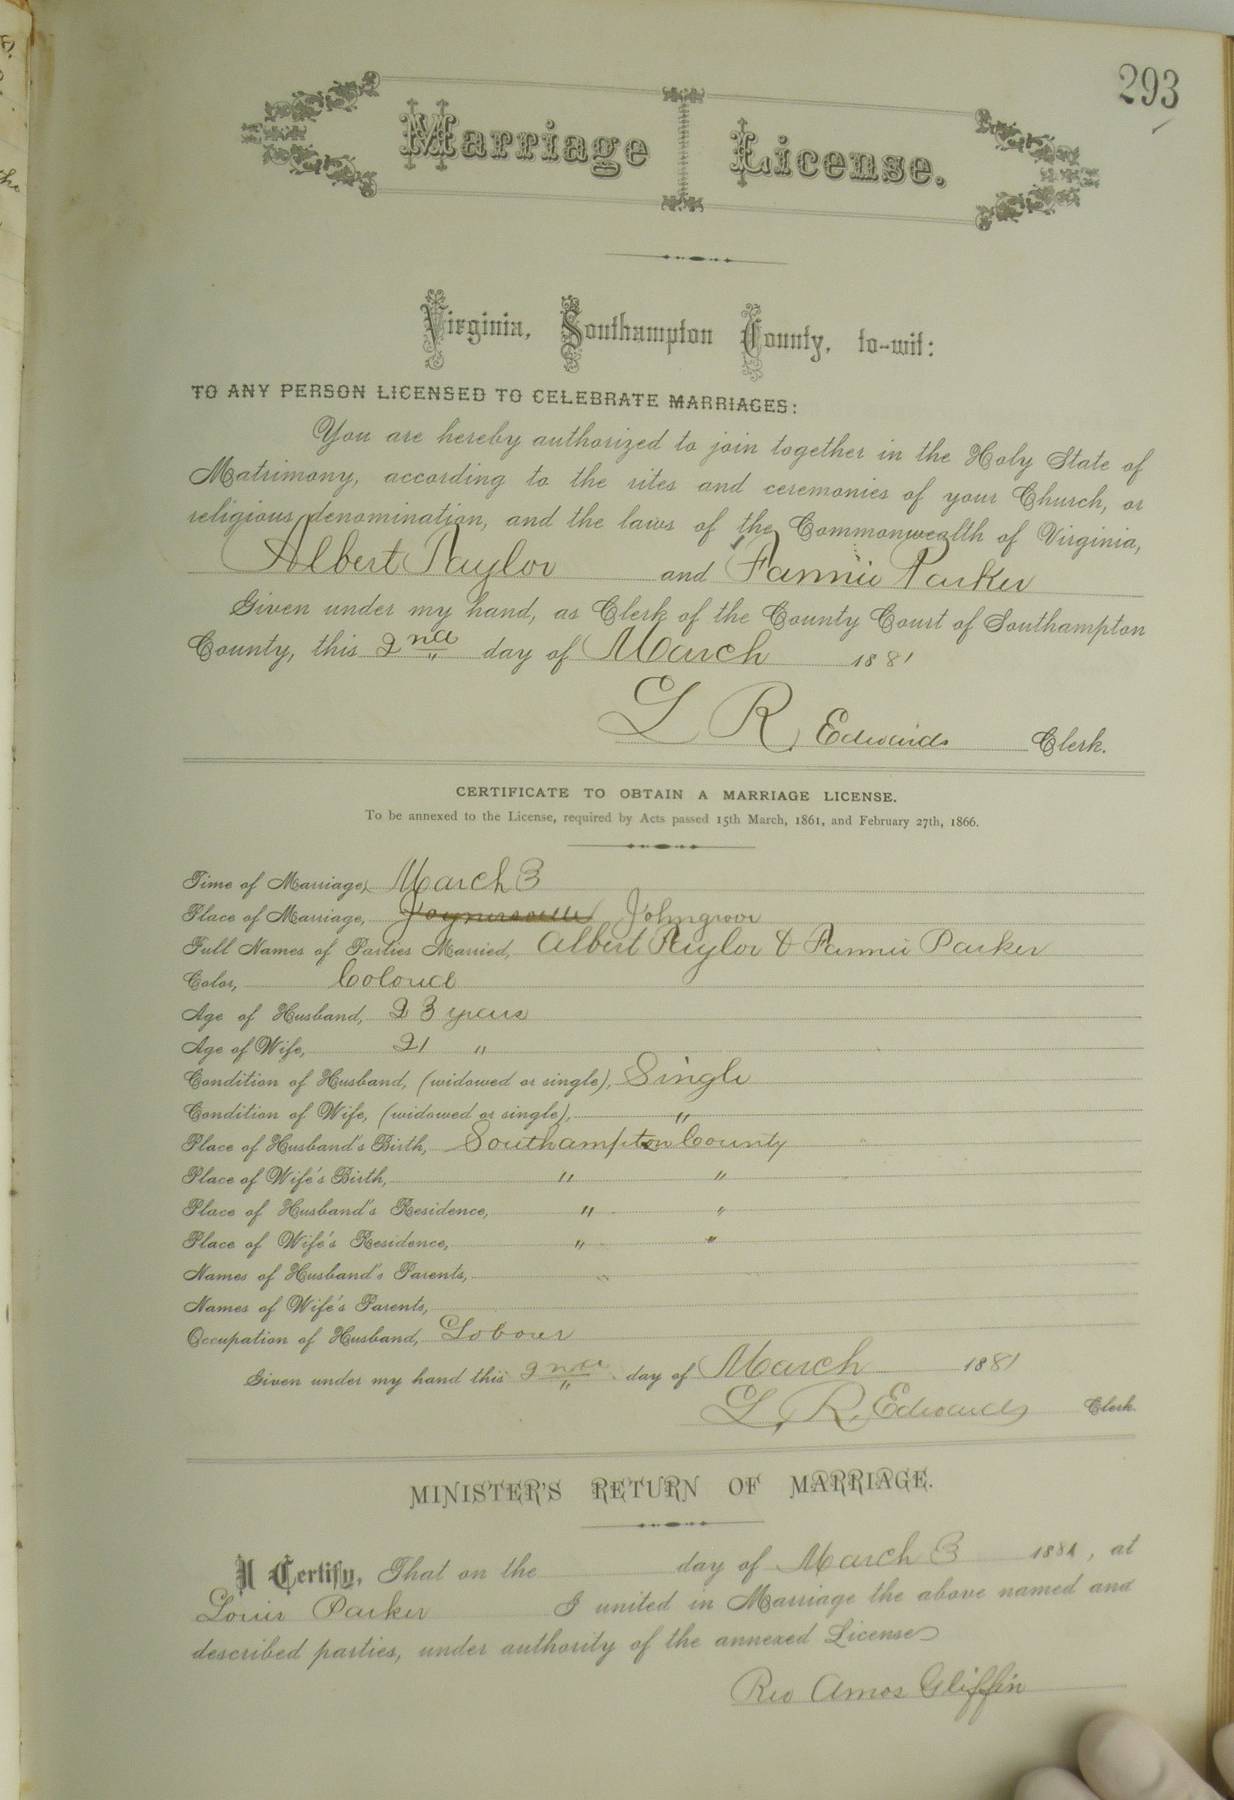 293
Marriage License.
Virginia, Southampton County, to-wit:
TO ANY PERSON LICENSED TO CELEBRATE MARRIAGES:
You are hereby authorized to join together in the Holy State of
Matrimony, according to the rites and ceremonies of your Church, or
religious denomination, and the laws of the Commonwealth of Virginia,
Albert Taylor and Fannie Parker
Given under my hand, as Clerk of the County Court of Southampton
County, this 2nd day of March 1881
L R Edwards Clerk.
CERTIFICATE TO OBTAIN A MARRIAGE LICENSE.
To be annexed to the License, required by Acts passed 15th March, 1861, and February 27th, 1866.
Time of Marriage, March 3
Place of Marriage, Joynersville Johngrove
Full Names of Parties Married, Albert Taylor & Fannie Parker
Color, Colored
Age of Husband, 23 years
Age of Wife, 21 "
Condition of Husband, (widowed or single), Single
Condition of Wife, (widowed or single), "
Place of Husband's Birth, Southampton County
Place of Wife's Birth, " "
Place of Husband's Residence, " "
Place of Wife's Residence, " "
Names of Husband's Parents,
Names of Wife's Parents,
Occupation of Husband, Labourer
Given under my hand this 2nd day of March 1881
L. R. Edwards Clerk.
MINISTER'S RETURN OF MARRIAGE.
I Certify, That on the day of March 3 1881, at
Louis Parker I united in Marriage the above named and
described parties, under authority of the annexed License
Rev Amos Gliffin